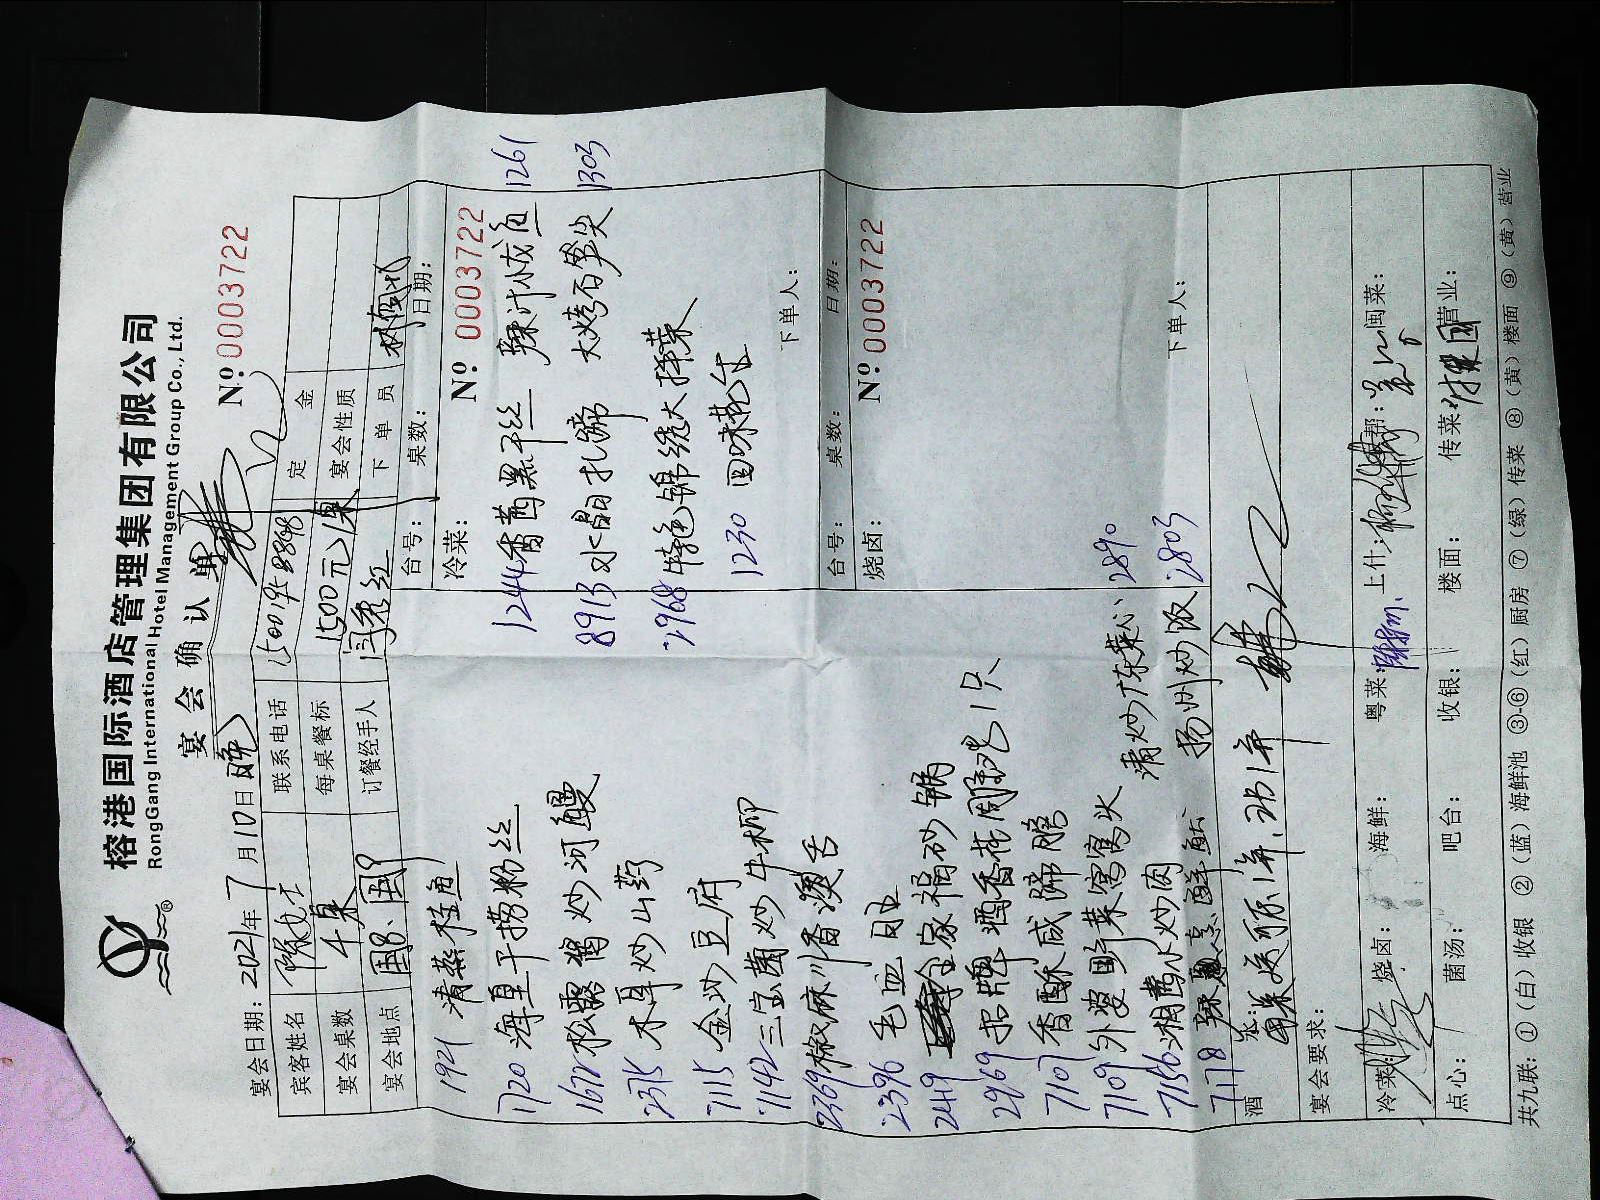 榕港国际酒店管理集团有限公司
RongGang International Hotel Management Group Co., Ltd.
宴会确认单
№:0003722
宴会日期：2021年7月10日 晚
宾客姓名 联系电话 定金
宴会桌数 4桌 每桌餐标 1500元/桌 宴会性质
宴会地点 国8、国9 订餐经手人 闫秀红 下单员
台号： 桌数： 日期：
冷菜： № 0003722
1244 香茜黑干丝 辣汁小成鱼 1261
8913 水晶扎蹄 大烤石笋尖 1303
2968 特色锦绣大拌菜
1230 回味花生
下单人：
台号： 桌数： 日期：
烧卤： №:0003722
下单人：
1921 清蒸桂鱼
1720 海皇干捞粉丝
1672 松露酱炒河鳗
2375 木耳炒山药
7115 金沙豆腐
7142 三宝菌炒牛柳
2369 椒麻川香澳舌
2396 毛血旺
2419 全家福砂锅
2969 招牌酒香花雕鸡1只
7107 香酥咸蹄膀
7109 外婆野菜窝窝头
7156 湘茜小炒肉
7178
清炒广东菜心 2890
扬州炒饭 2803
酒水：
宴会要求：
冷菜： 烧卤： 海鲜： 粤菜： 上什： 闽菜：
点心： 菌汤： 吧台： 收银： 楼面： 传菜： 营业：
共九联： ①（白）收银 ②（蓝）海鲜池 ③-⑥（红）厨房 ⑦（绿）传菜 ⑧（黄）楼面 ⑨（黄）营业